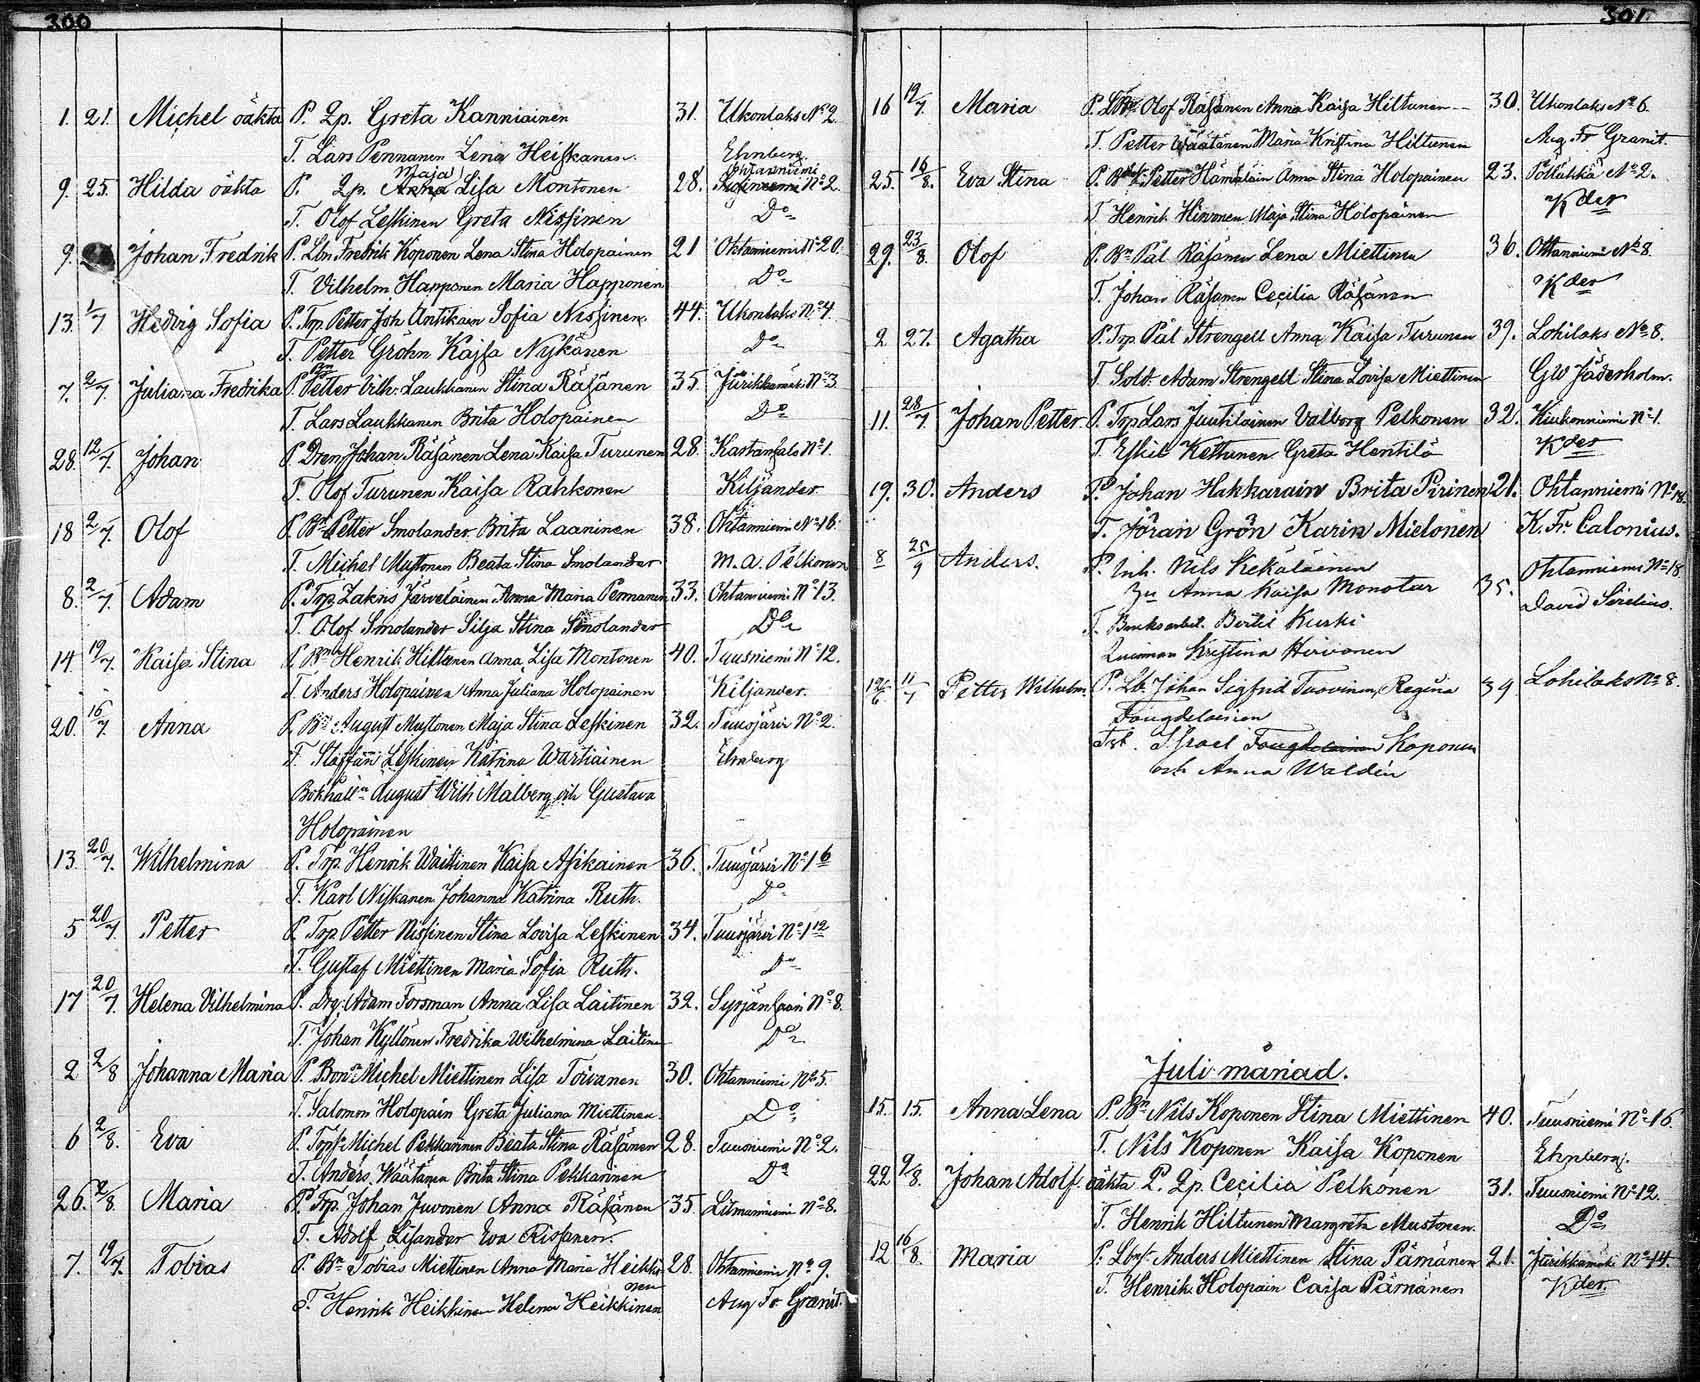 300
1. 21. Michel oäkta P. Qp. Greta Kanniainen 31. Ukonlaks No 2.
T. Lars Pennanen Lena Heiskanen. Ehnberg.
Maja Ohtanniemi
9. 25. Hilda oäkta P. Qp. Anna Lisa Montonen 28. No 2.
T. Olof Leskinen Greta Nissinen Do
9. Johan Fredrik P. Lbn Fredrik Koponen Lena Stina Holopainen 21 Ohtaniemi No 20.
T. Vilhelm Happonen Maria Happonen Do
13. 1/7 Hedvig Sofia P. Trp. Petter Joh Antikain Sofia Nissinen. 44. Ukonlaks No 4.
T. Petter Grohn Kajsa Nykänen Do
7. 2/7. Juliana Fredrika P. Bn Petter Vilh. Laukkanen Stina Räsänen 35. Jurikkamäki No 3.
T. Lars Laukkanen Brita Holopainen Do
28. 12/7. Johan P. Dren Johan Räsänen Lena Kaisa Turunen 28. Kartansalo No 1.
T. Olof Turunen Kaisa Rahkonen Kiljander.
18 2/7. Olof P. Bn Petter Smolander. Brita Laaninen 38. Ohtanniemi No 16.
T. Michel Mustonen Beata Stina Smolander M. A. Pelkonen
8. 2/7. Adam P. Trp. Zakris Järveläinen Anna Maria Pennanen 33. Ohtanniemi No 13.
T. Olof Smolander Silja Stina Smolander Do
14 19/7. Kaisa Stina P. Bn Henrik Hiltunen Anna Lisa Montonen 40. Tuusniemi No 12.
T. Anders Holopainen Anna Juliana Holopainen Kiljander.
20. 16/7. Anna P. Bn August Mustonen Maja Stina Leskinen 32. Tuusjärvi No 2.
T. Staffan Leskinen Katrina Wartiainen Ehnberg
Bokhålln August Wilh Malberg och Gustava
Holopainen
13. 20/7. Wilhelmina P. Trp. Henrik Waittinen Kaisa Asikainen 36. Tuusjärvi No 16
T. Karl Niskanen Johanna Katrina Ruth. Do
5 20/7. Petter P. Trp. Petter Nissinen Stina Lovisa Leskinen 34. Tuusjärvi No 112
T. Gustaf Miettinen Maria Sofia Ruth. Do
17 20/7. Helena Vilhelmina P. Drg. Adam Forsman Anna Lisa Laitinen 32. Syrjänsaari No 8.
T. Johan Kyllönen Fredrika Wilhelmina Laitine Do
2 2/8 Johanna Maria P. Bon Michel Miettinen Lisa Toivanen 30. Ohtanniemi No 5.
T. Salomon Holopain Greta Juliana Miettinen. Do
6 2/8. Eva P. Trps. Michel Pekkarinen Beata Stina Räsänen 28. Tuusniemi No 2.
T. Anders Wäätanen Brita Stina Pekkarinen Do
26. 2/8. Maria P. Trp. Johan Juvonen Anna Räsänen 35. Litmaniemi No 8.
T. Adolf Lisander Eva Rissanen.
7. 19/7. Tobias P. Bn Tobias Miettinen Anna Maria Heikki- 28. Ohtanniemi No 9.
nen
T. Henrik Heikkinen Helena Heikkinen Aug Fr Granit.
301
16 19/7 Maria P. Lbn. Olof Räsänen Anna Kaisa Hiltunen 30. Ukonlaks No 6.
T. Petter Wäätänen Maria Kristina Hiltunen Aug. Fr Granit.
25. 16/8. Eva Stina P. Petter Hämäläin Anna Stina Holopainen 23. Pöllukka No 2.
T. Henrik Hirvonen Maja Stina Holopainen Kder
29. 23/8. Olof P. Bn Pål Räsänen Lena Miettinen 36. Ohtanniemi No 8.
T. Johan Räsänen Cecilia Räsänen Kder
2 27. Agatha P. Trp Pål Strengell Anna Kaisa Turunen 39. Lohilaks No 8.
T. Sold. Adam Strengell Stina Lovisa Miettinen GW Jäderholm.
11. 28/7 Johan Petter P. Trp Lars Juutilainen Valborg Pelkonen 32. Kiukonniemi No 1.
T. Eskil Kettunen Greta Henttilä Kder
19. 30. Anders P. Johan Hakkarain Brita Pirinen 21. Ohtanniemi No 18.
T. Jöran Grön Karin Mielonen K. Fr Calonius.
8 25/9 Anders. P. Inh. Nils Kekäläinen Ohtanniemi No 18.
Anna Kaisa Monotar 35. David Sirelius.
T. Bruksarbet. Bertil Kurki
Kristina Hirvonen
19/6 11/7 Petter Wilhelm. P. Lb. Johan Sigfrid Tuovinen, Regina 39 Lohilaks No 8.
Fougdelainen
Tst. Israel Fougdelainen Koponen
och Anna Waldén
Juli månad.
15. 15. Anna Lena P. Bn Nils Koponen Stina Miettinen 40. Tuusniemi No 16.
T. Nils Koponen Kaisa Koponen Ehnberg.
22 9/8. Johan Adolf oäkta P. Qp. Cecilia Pelkonen 31. Tuusniemi No 12.
T. Henrik Hiltunen Margreta Mustonen. Do
12 16/8. Maria P. Lbns. Anders Miettinen Stina Pärnänen 21. Jurikkamäki No 14.
T. Henrik Holopain Caisa Pärnänen Kder.